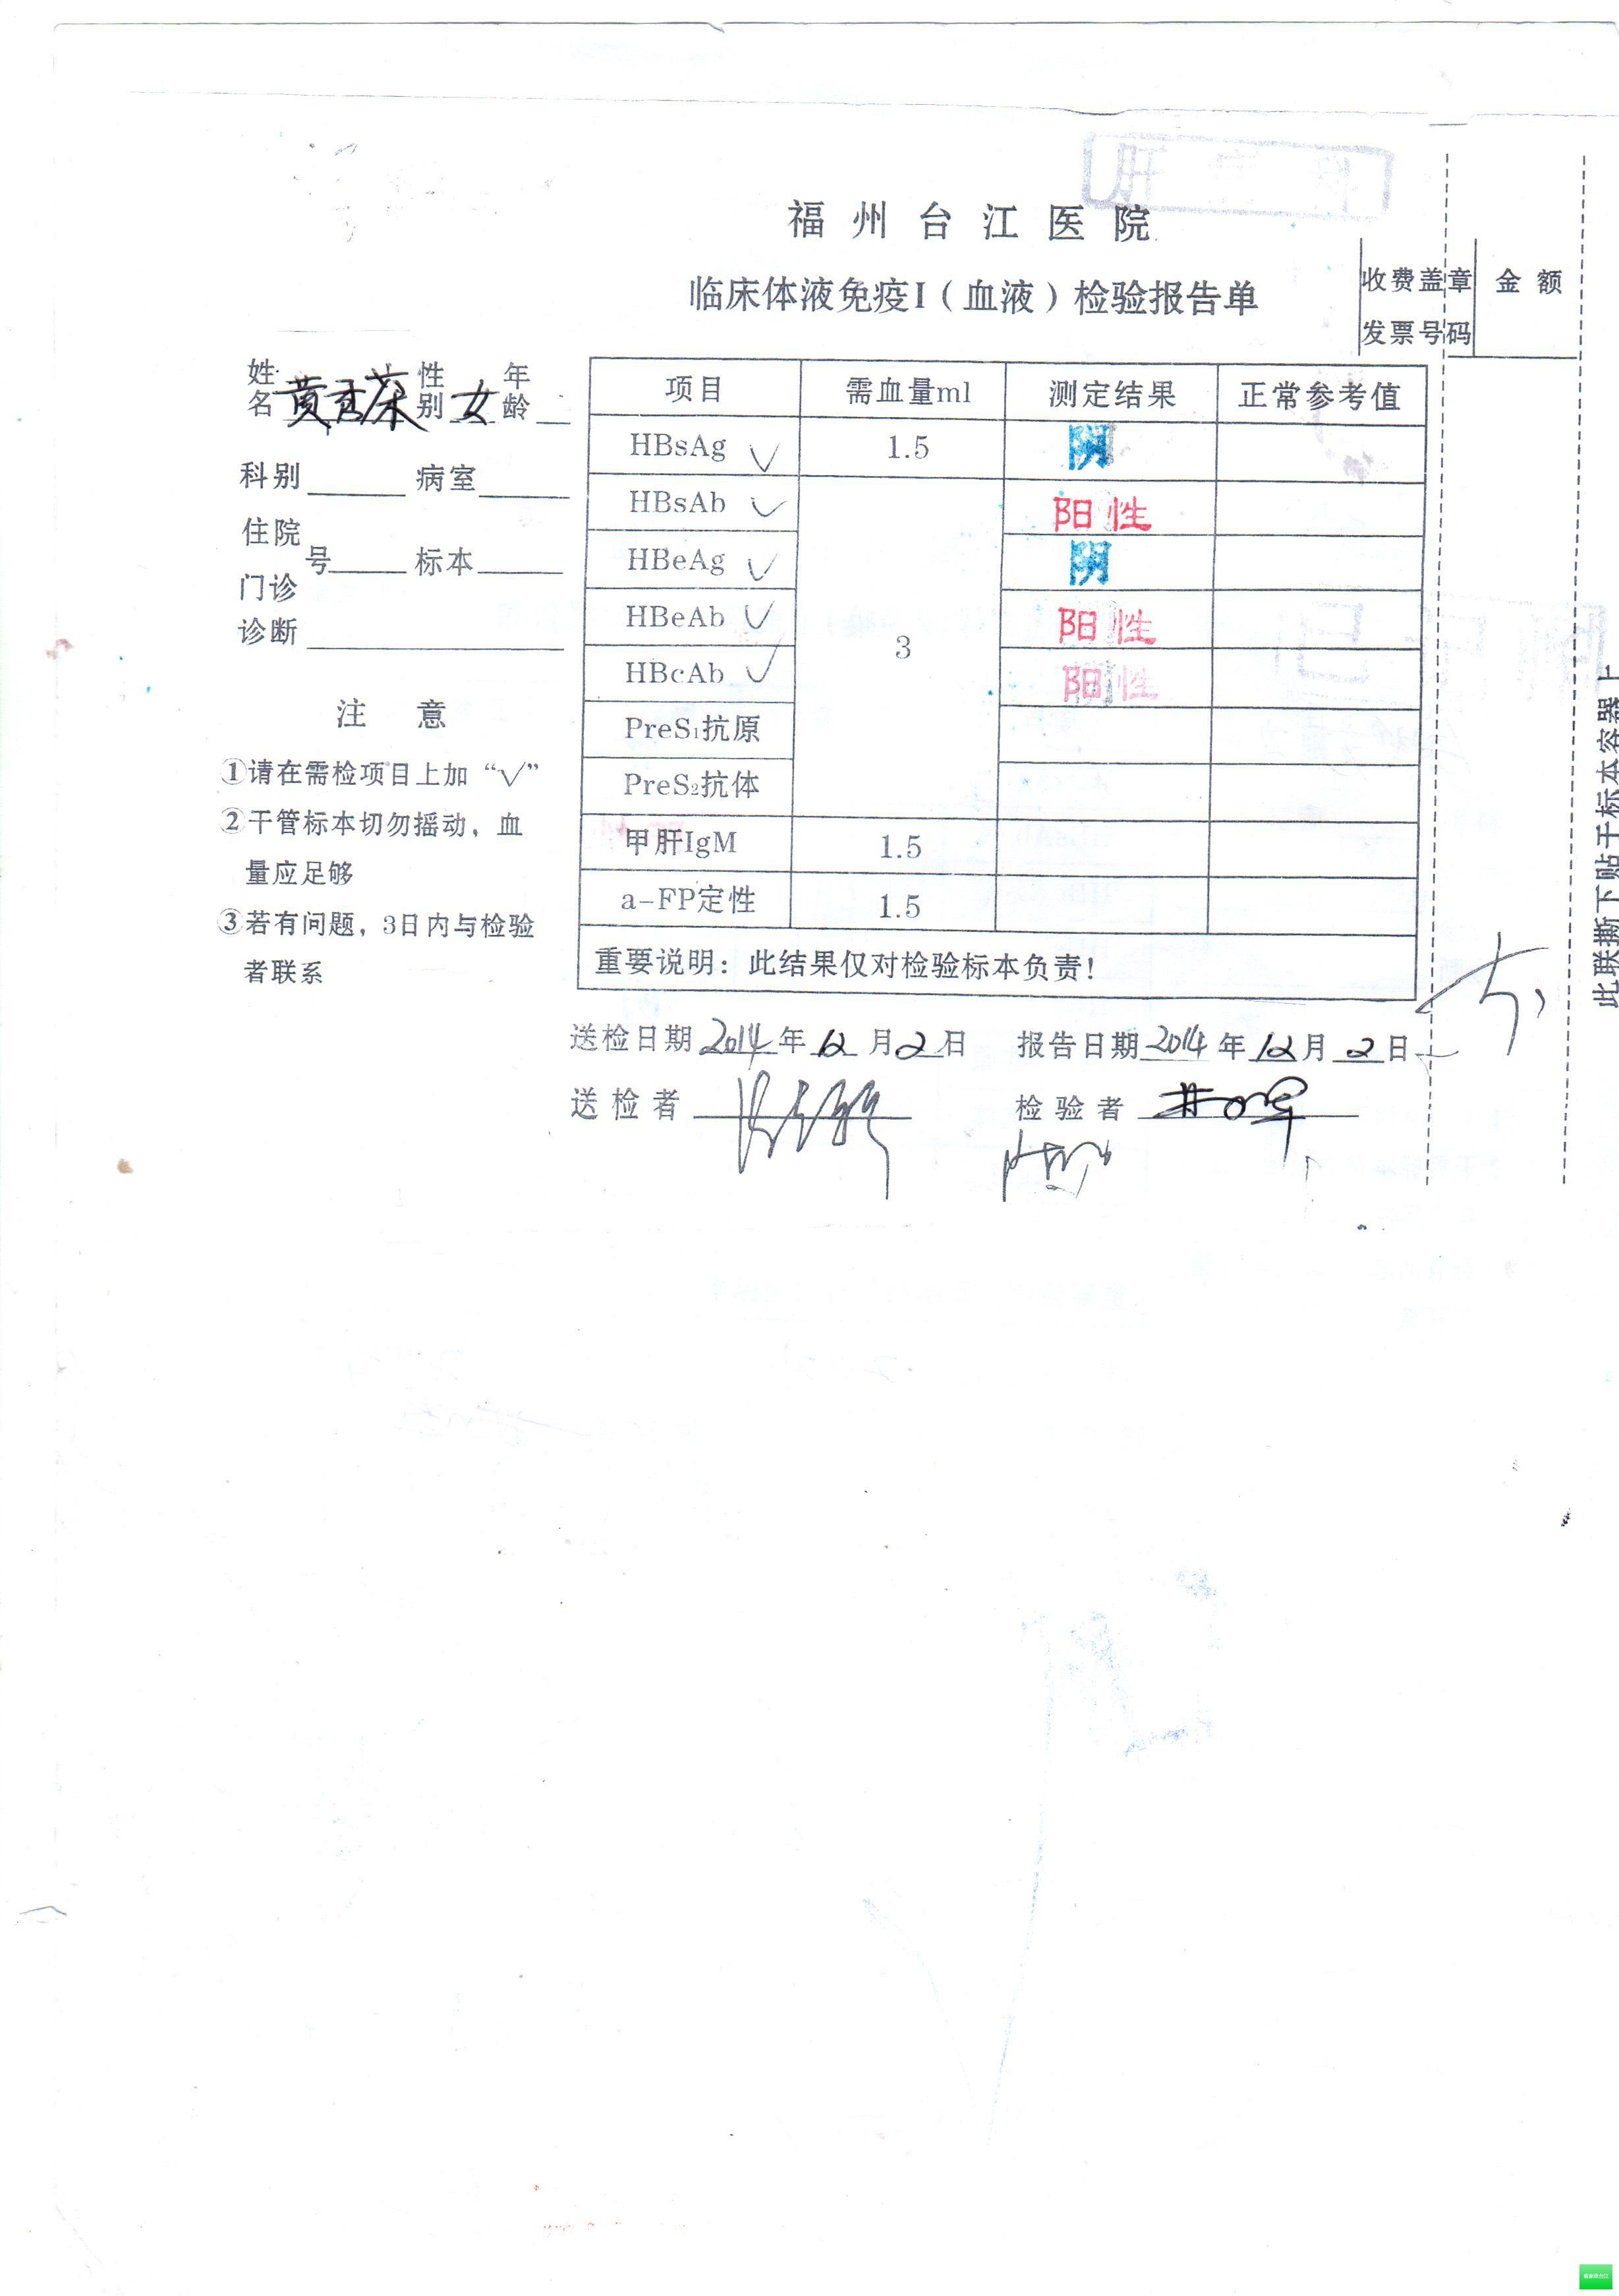 福州台江医院
临床体液免疫I（血液）检验报告单
收费盖章 金额
发票号码
姓名 黄秀 性别 女 年龄
科别 病室
住院
门诊 号 标本
诊断
注 意
①请在需检项目上加“√”
②干管标本切勿摇动，血
量应足够
③若有问题，3日内与检验
者联系
项目 需血量ml 测定结果 正常参考值
HBsAg √ 1.5 阴
HBsAb √ 3 阳性
HBeAg √ 阴
HBeAb √ 阳性
HBcAb √ 阳性
PreS₁抗原
PreS₂抗体
甲肝IgM 1.5
a-FP定性 1.5
重要说明：此结果仅对检验标本负责！
送检日期 2014 年 12 月 2 日 报告日期 2014 年 12 月 2 日
送检者 检验者
此联撕下贴于标本容器上